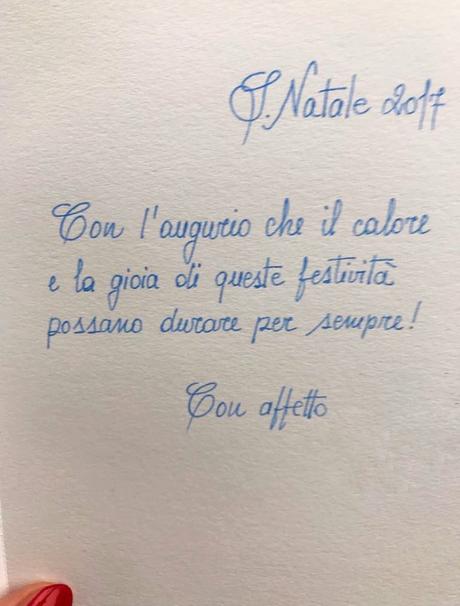 S. Natale 2017
Con l'augurio che il calore
e la gioia di queste festività
possano durare per sempre!
Con affetto